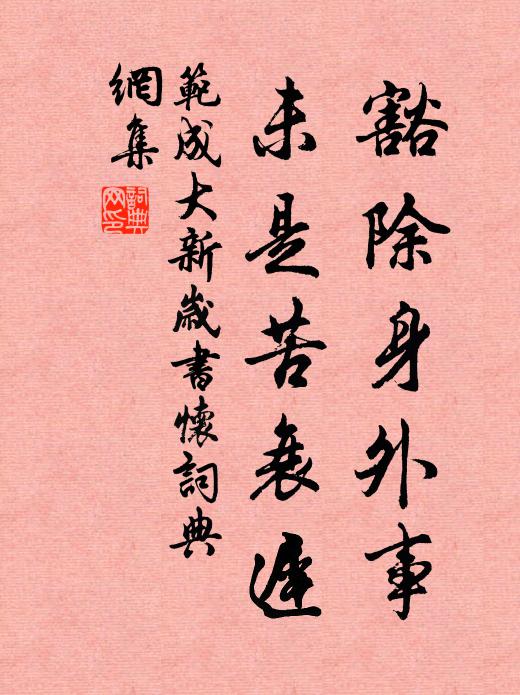 豁除身外事
未是苦衰遲
範成大新歲書懷詞典
網集
詞典
网印